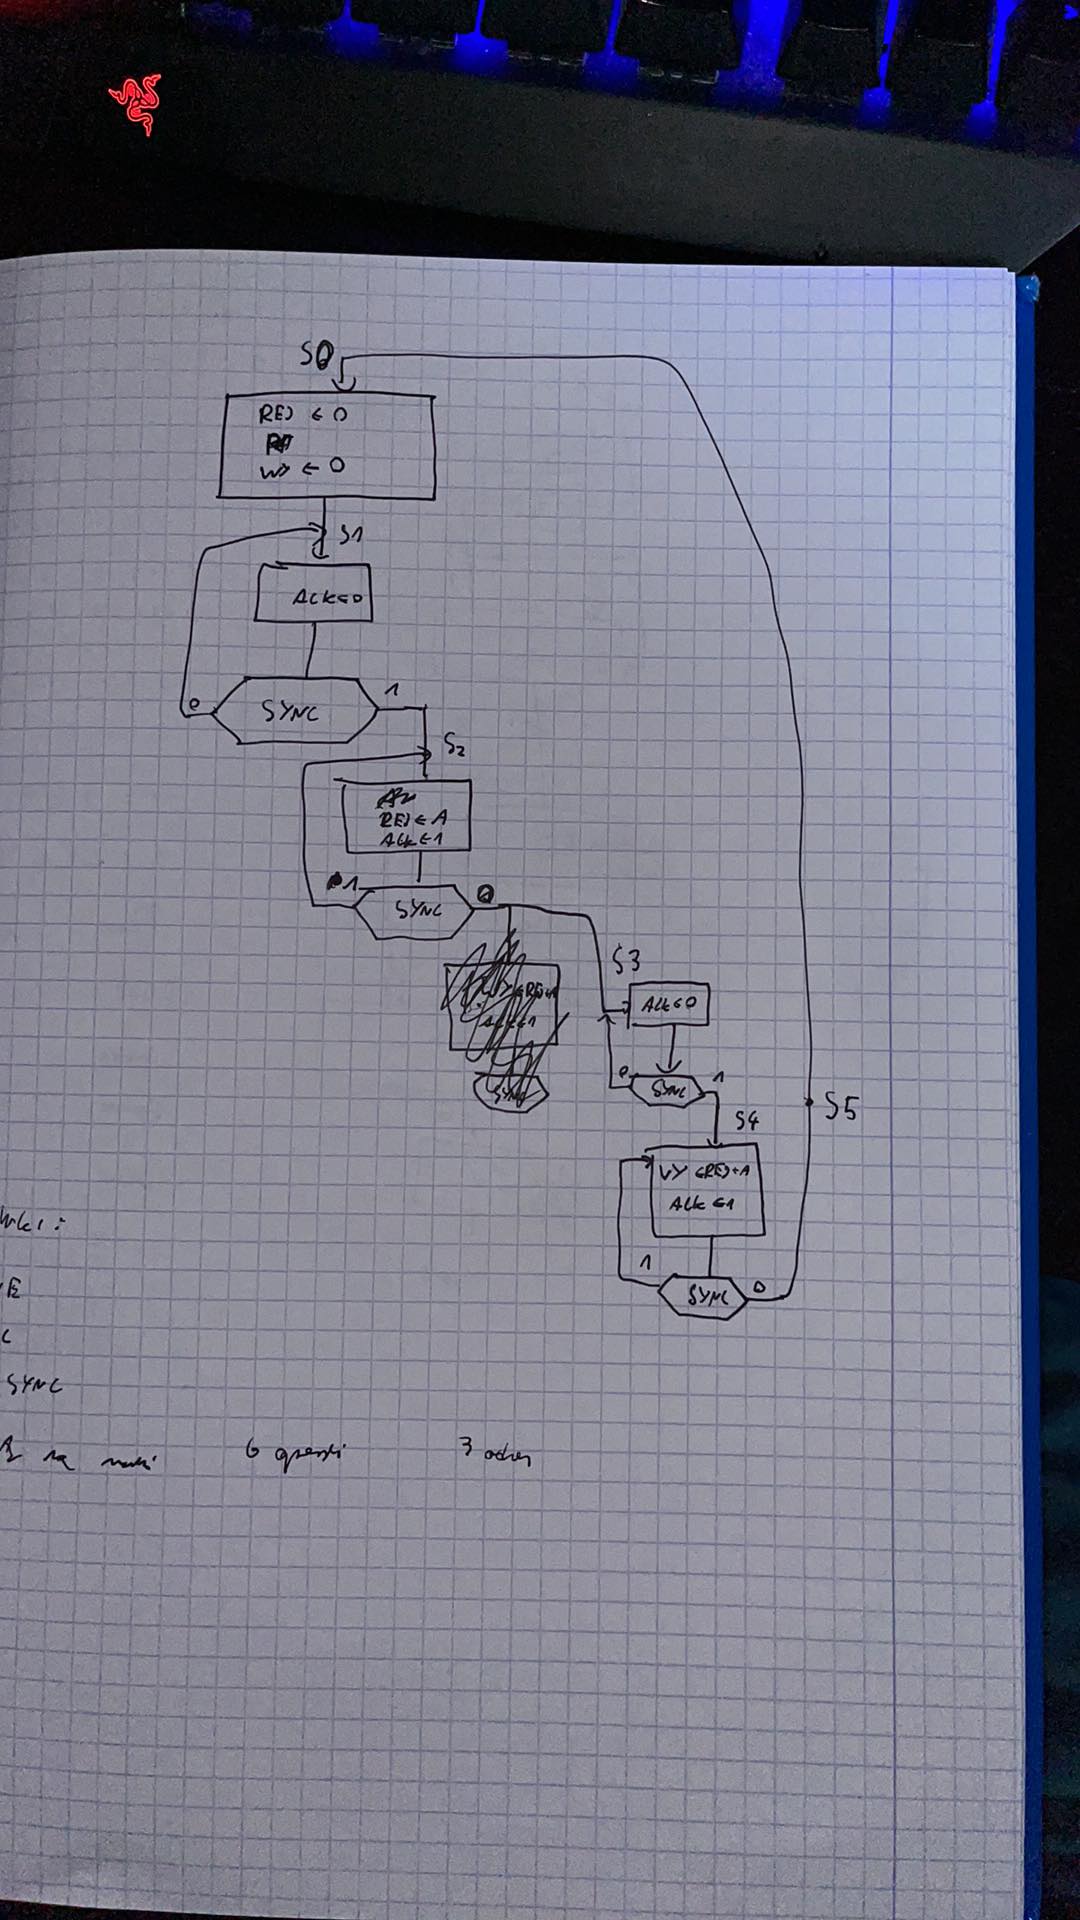 S0
REJ ← 0
WY ← 0
S1
ACK ← 0
0 SYNC 1
S2
REJ ← A
ACK ← 1
1 SYNC 0
S3
ACK ← 0
0 SYNC 1
S4
S5
WY ← REJ + A
ACK ← 1
1 SYNC 0
SYNC
6
3